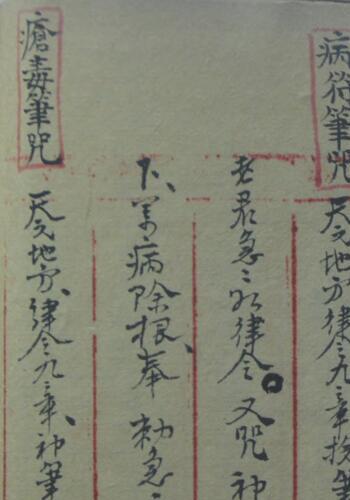 病符筆咒
天文地方律令九章投筆
老君急〻如律令。又咒神
下、筆萬病除根、奉勅急〻
瘡毒筆咒
天文地方、律令九章、神筆